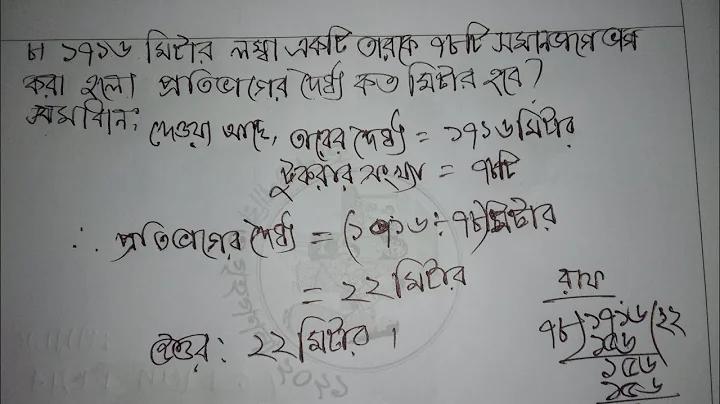 ৮। ১৭১৬ মিটার লম্বা একটি তারকে ৭৮টি সমানভাগে ভাগ
করা হলো প্রতিভাগের দৈর্ঘ্য কত মিটার হবে?
সমাধান: দেওয়া আছে, তারের দৈর্ঘ্য = ১৭১৬ মিটার
টুকরার সংখ্যা = ৭৮টি
∴ প্রতিভাগের দৈর্ঘ্য = (১৭১৬ ÷ ৭৮) মিটার
= ২২ মিটার
উত্তর: ২২ মিটার।
রাফ
৭৮) ১৭১৬ (২২
১৫৬
১৫৬
১৫৬